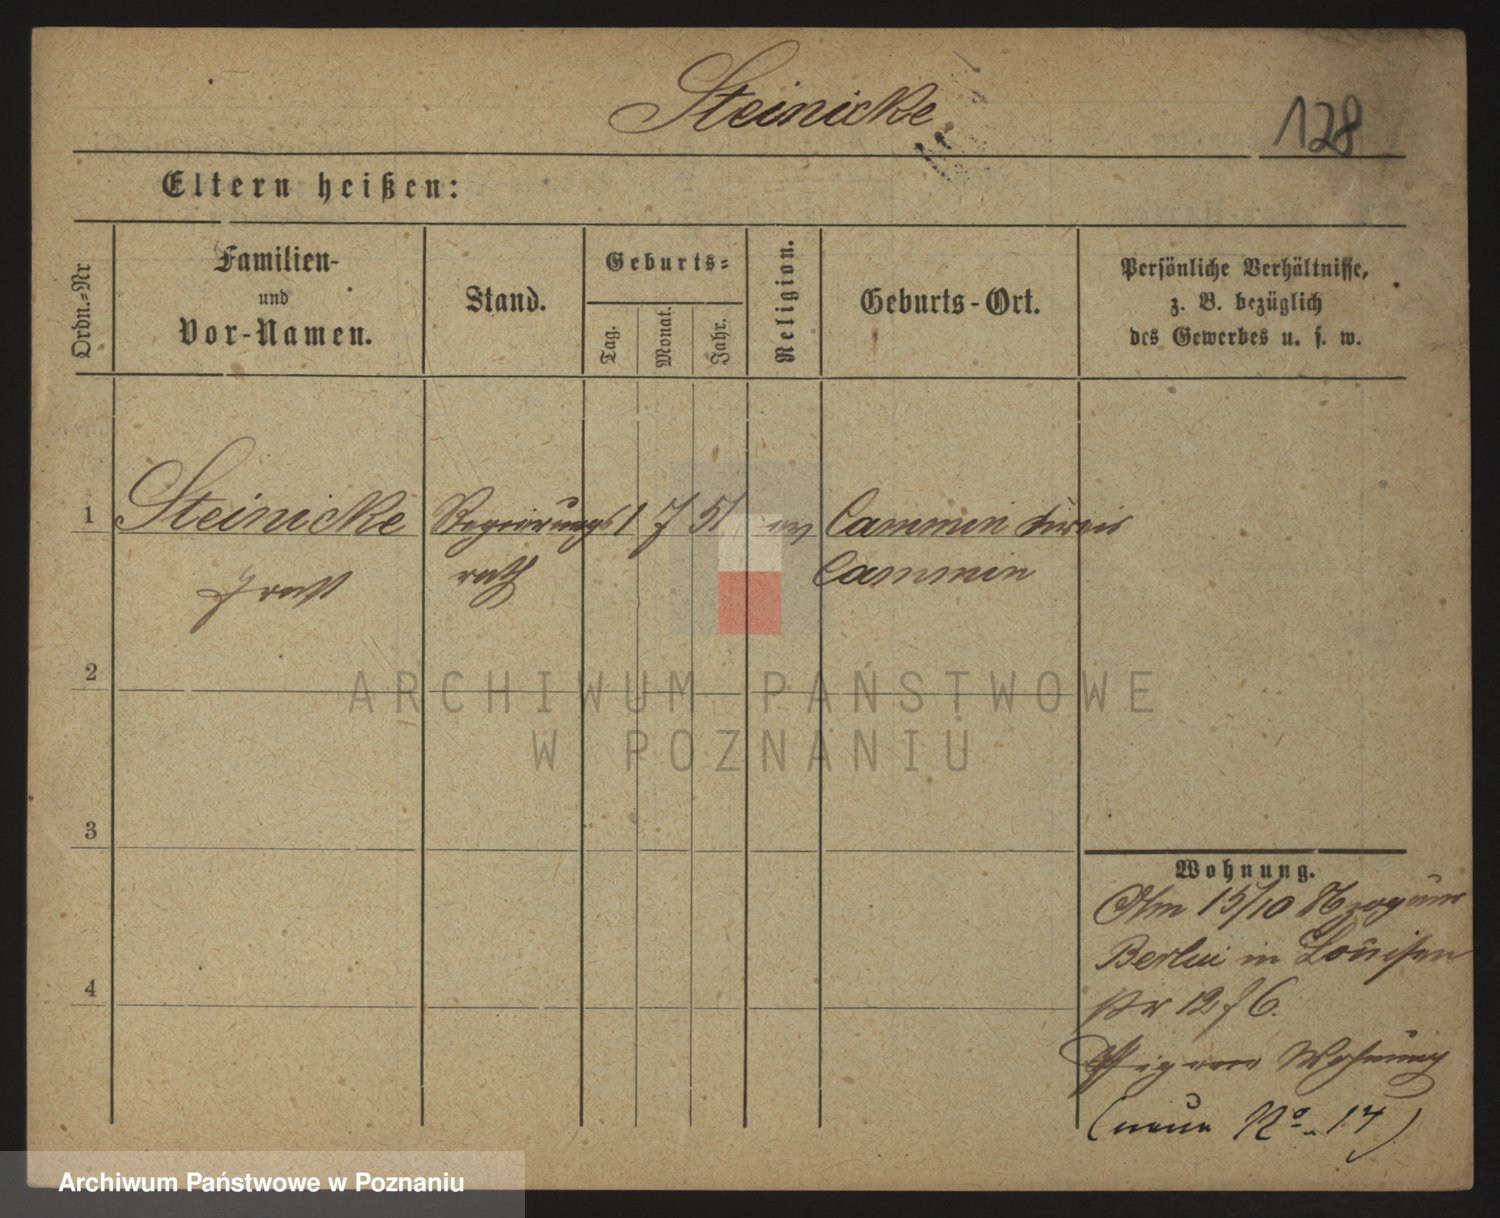 Steinicke
128
Eltern heißen:
Ordn.=Nr
Familien-
und
Vor-Namen.
Stand.
Geburts=
Tag.
Monat.
Jahr.
Religion.
Geburts-Ort.
Persönliche Verhältnisse,
z. B. bezüglich
des Gewerbes u. s. w.
1
Steinicke
Regierungs
1 7 51
ev
Cammin Kreis
Ernst
rath
Cammin
2
ARCHIWUM PAŃSTWOWE
W POZNANIU
3
Wohnung.
15/10
Berlin in Louisen
4
str 12 f 6.
Eigene Wohnung
(neue No. 14)
Archiwum Państwowe w Poznaniu